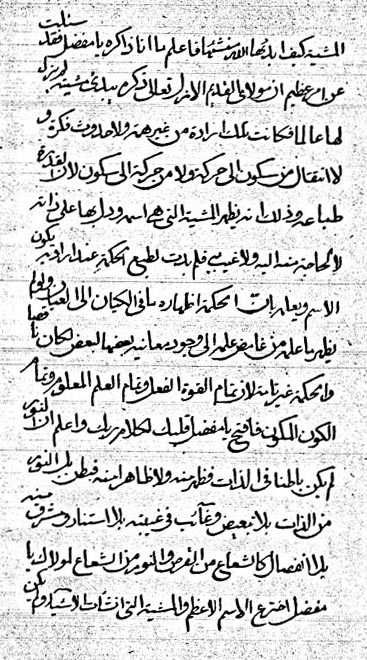 المشية كيف ابداها منشئها فاعلم ما انا ذاكره يا مفضل فقد سئلت
عن امر عظيم ان مولاي القديم الازل تعالى ذكره يبدئ مشية لم يزل
لها عالما فكانت تلك ارادة من غير همة ولا حدوث فكرة و
لا انتقال من سكون الى حركة ولا من حركة الى سكون لان القدرة
طباعه وذلك انه يظهر المشية التي هي اسمه ودل بها على ذاته
لا لحاجة منه اليه ولا غيب به فلم بدت لطبع الحكمة عند ارادته يكون
الاسم وبعلم بان الحكمة اظهار ما في الكيان الى العيان ولو لم
يظهر ما علمه من غامض علمه الى وجود معانيه بعضها لبعض لكان ناقصا
والحكمة غير تامة لان تمام القوة الفعل وتمام العلم المعلوم وتمام
الكون المكون فافتح يا مفضل قلبك لكلام ربك واعلم ان النور
لم يكن باطنا في الذات فظهر منه ولا ظاهرا منه فبطن بل النور
من الذات بلا تبعيض وغائب في غيبته بلا استتار ومشرق منه
بلا انفصال كالشعاع من القرص والنور من الشعاع لمولاك يا
مفضل اخترع الاسم الاعظم والمشية التي انشأت الاشياء ولم يكن